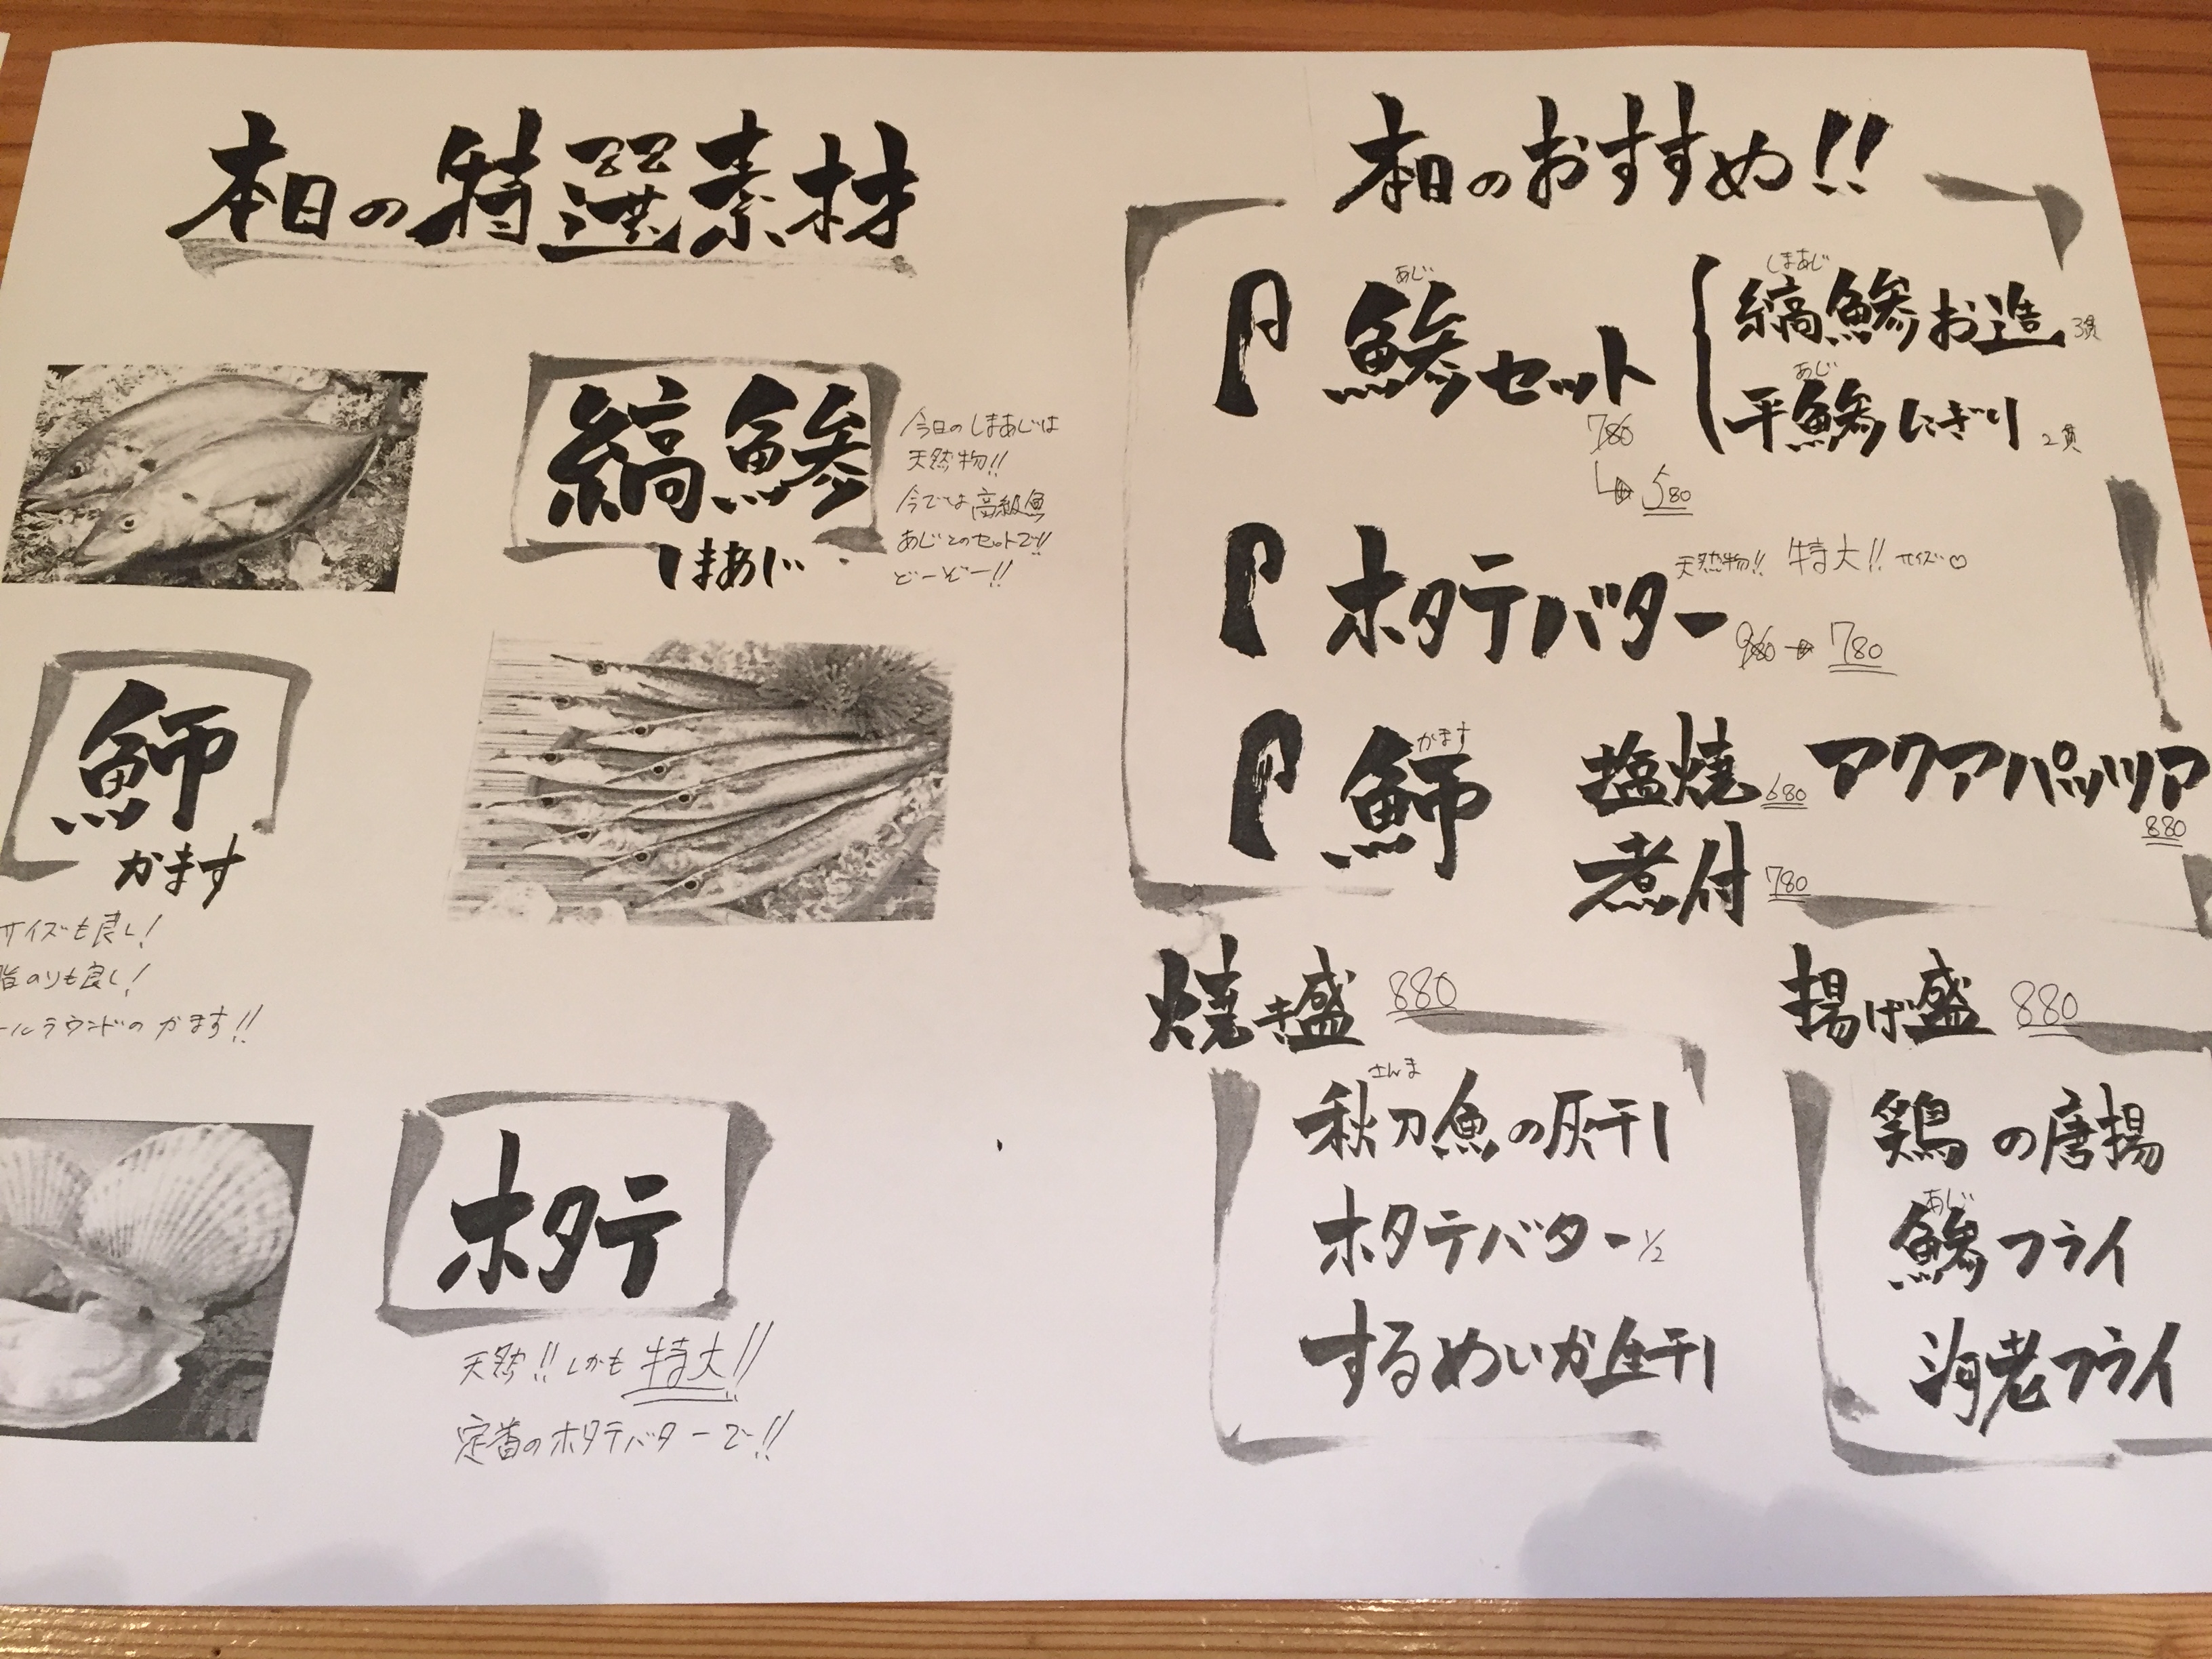 本日の特選素材
縞鯵
しまあじ
今日のしまあじは
天然物!!
今では高級魚
あじとのセットで!!
どーぞー!!
鰤
かます
サイズも良し!
脂のりも良し!
ールラウンドのかます!!
ホタテ
天然!!しかも特大!!
定番のホタテバターで!!
本日のおすすめ!!
あじ
鯵セット
780
580
しまあじ
縞鯵お造 3貫
あじ
平鯵にぎり 2貫
ホタテバター
天然物!! 特大!! サイズ♡
980→780
かます
鰤 塩焼 680 アクアパッツァ 880
煮付 780
焼き盛 880
さんま
秋刀魚の灰干し
ホタテバター 1/2
するめいか生干し
揚げ盛 880
鶏の唐揚
あじ
鯵フライ
海老フライ